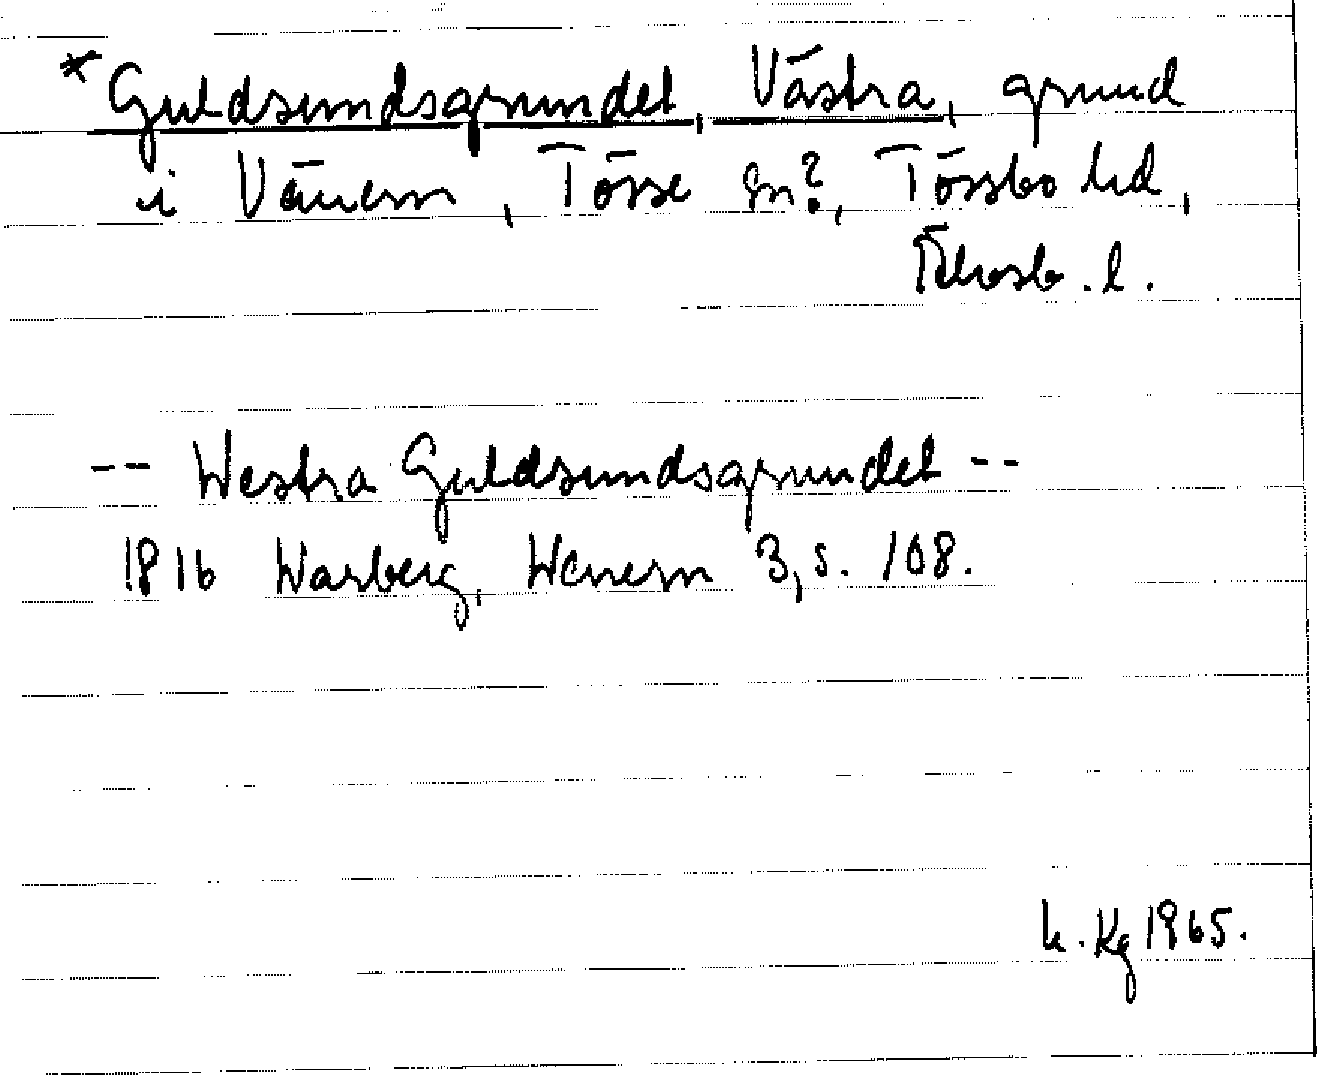 *Guldsundsgrundet, Västra, grund
i Vänern, Tösse sn?, Tössbo hd,
Älvsb. l.
-- Westra Guldsundsgrundet --
1816 Warberg, Wenern 3, s. 108.
K. Kg 1965.